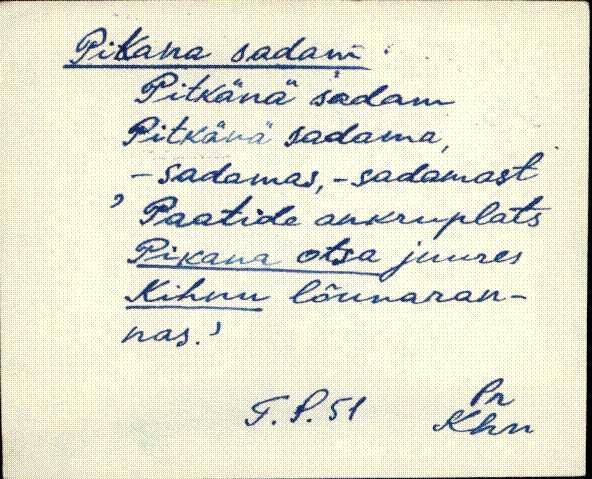 Pikana sadam
Pitkänä sadam
Pitkänä sadama,
- sadamas, - sadamast
' Paatide ankruplats
Pikana otsa juures
Kihnu lõunaran-
nas.'
T. P. 51
Pn
Khn